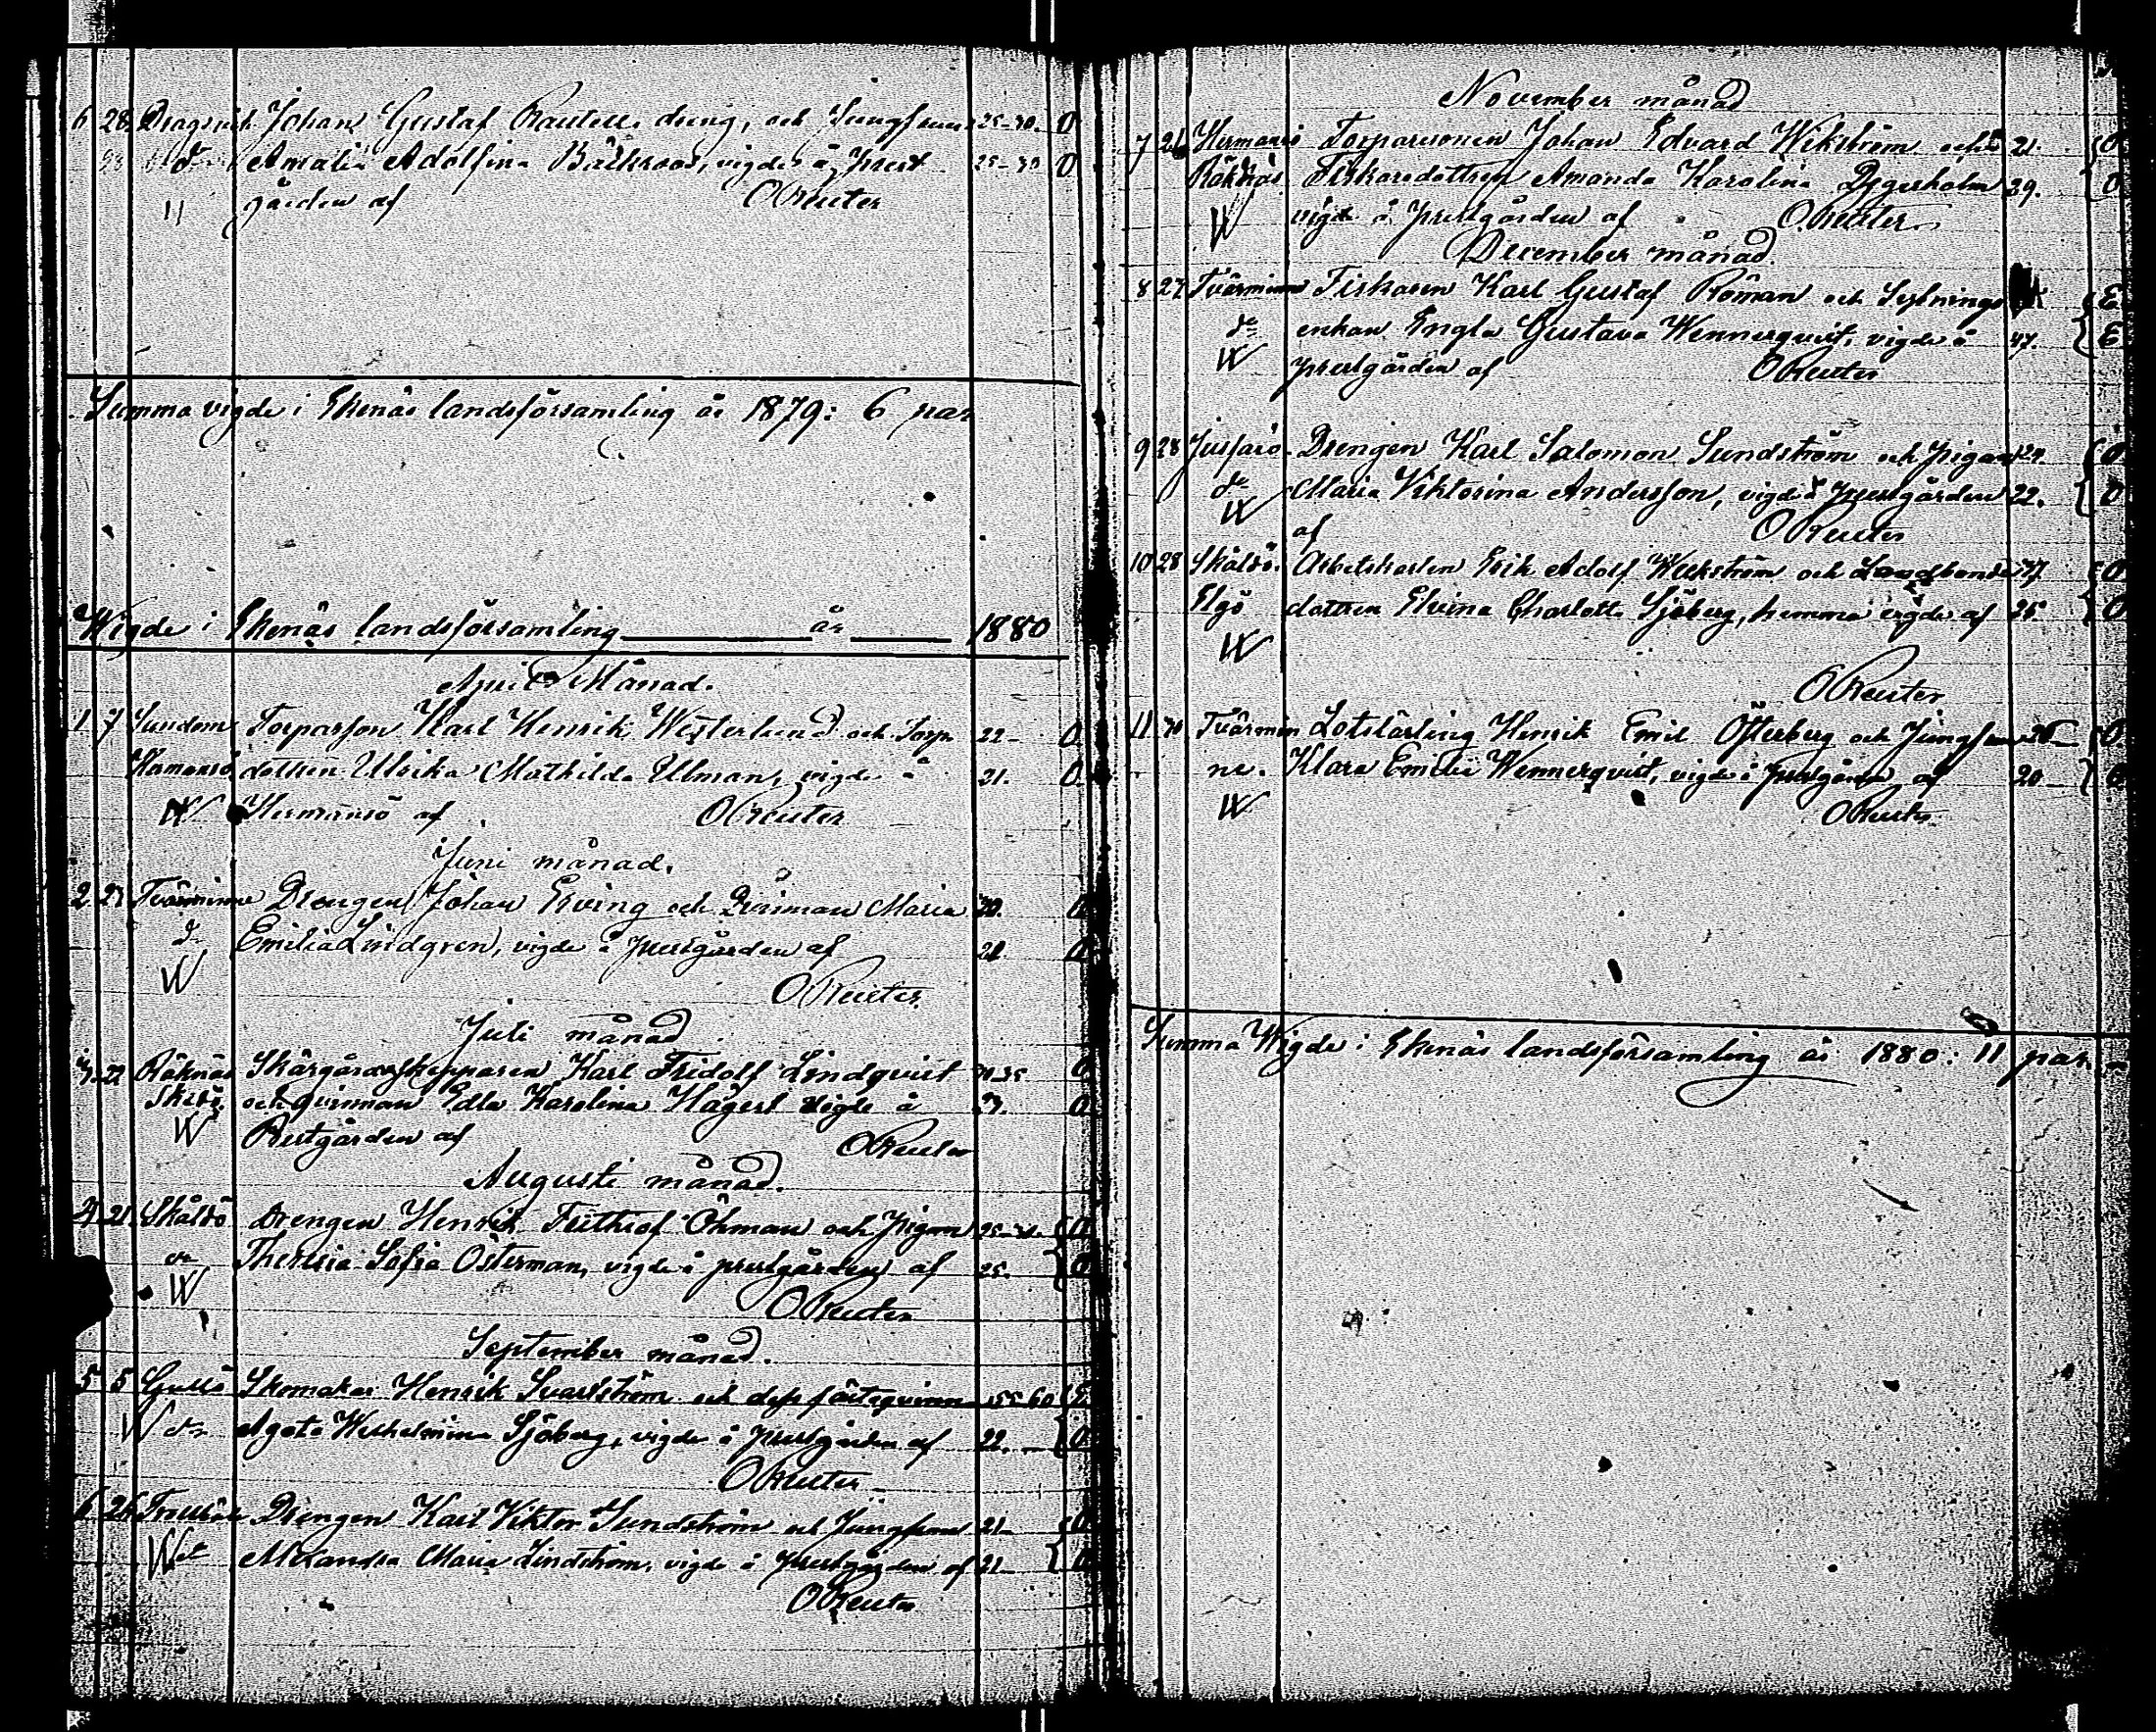 6 28 Dragsvik Johan Gustaf Rautell dreng, och Jungfrun 25-30. 0
do Amalia Adolfina Bäckroos, vigde å prest 25-30 0
gården af OReuter
Summa vigde i Ekenäs landsförsamling år 1879: 6 par
Wigde i Ekenäs landsförsamling år 1880
April Månad.
1 7 Sundom Torparson Karl Henrik Westerlund och Torp 22- 0
Hermansö dottren Ulrika Mathilda Ulman, vigde å 21. 0
W Hermansö af OReuter
Juni månad.
2 27 Tvärminne Drengen Johan Eving och Qvinnan Maria 0
do Emilia Lindgren, vigde å prestgården af 0
W OReuter
Juli månad
3 22 Räknäs Skärgårdsskepparen Karl Fridolf Lindqvist 30-35 0
och qvinnan Edla Karolina Hägert vigde å 0
W Prestgården af OReuter
Augusti månad.
4 21 Skåldö Drengen Henrik Frithiof Öhman och Pigan 25-30. { 0
do Theresia Sofia Österman, vigde å prestgården af 25. { 0
W OReuter
September månad.
5 5 Gullö Skomakar Henrik Svartström och dess fästeqvinna 55-60 { E
W do Agata Wilhelmina Sjöberg, vigde å prestgården af 22. { 0
OReuter
6 26 Drengen Karl Viktor Sundström och Jungfrun 21- { 0
W do Alexandra Maria Lindström, vigde å prestgården af 21- { 0
OReuter
November månad
7 21 Hermansö Torparesonen Johan Edvard Wikström och 21. { 0
Räknäs Fiskaredottren Amanda Karolina Degerholm 29. { 0
W vigde å prestgården af O.Reuter.
December månad.
8 27 Tvärminne Fiskaren Karl Gustaf Röman och Sytnings { E
do enkan Engla Gustava Wennerqvist, vigde å 47. { E
W prestgården af OReuter
9 28 Jussarö Drengen Karl Salomon Sundström och Pigan 24. { 0
do Maria Viktorina Andersson, vigde å prestgården 22. { 0
W af OReuter
10 28 Skåldö. Arbetskarlen Erik Adolf Weckström och Landbonde { 0
Elgö dottren Elvina Charlotta Sjöberg, hemma vigde af 25. { 0
W
OReuter
11 30 Tvärmin Lotslärling Henrik Emil Österberg och Jungfrun { 0
ne. Klara Emilia Wennerqvist, vigde i prestgården af 20 } 0
W OReuter
Summa Wigde i Ekenäs landsförsamling år 1880: 11 par